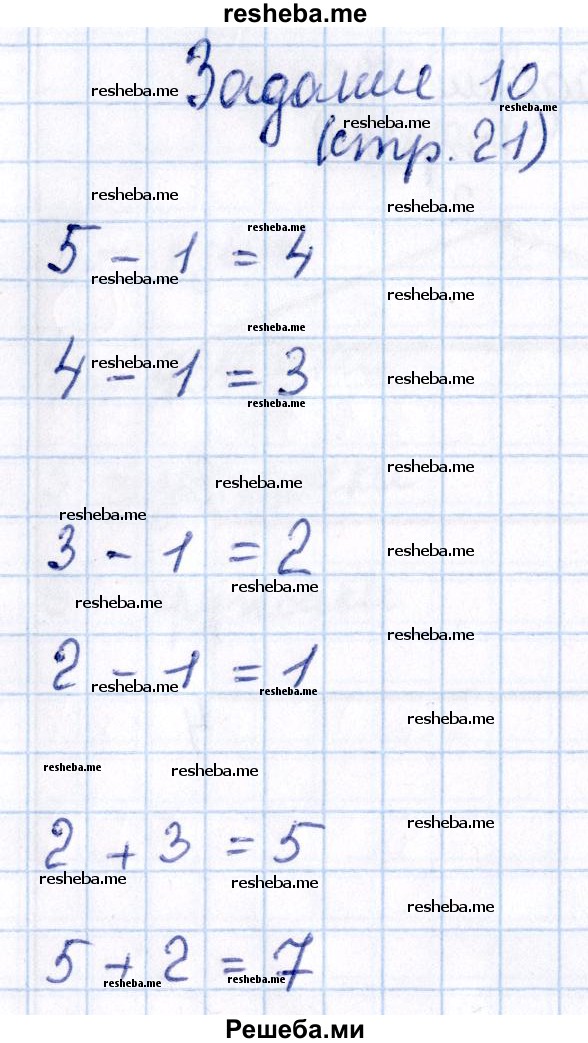 resheba.me
resheba.me
Задание 10
resheba.me
resheba.me
(стр. 21)
resheba.me
resheba.me
resheba.me
5 - 1 = 4
resheba.me
resheba.me
resheba.me
resheba.me
4 - 1 = 3
resheba.me
resheba.me
resheba.me
resheba.me
resheba.me
3 - 1 = 2
resheba.me
resheba.me
resheba.me
resheba.me
2 - 1 = 1
resheba.me
resheba.me
resheba.me
resheba.me
resheba.me
resheba.me
2 + 3 = 5
resheba.me
resheba.me
resheba.me
5 + 2 = 7
resheba.me
resheba.me
Решеба.ми